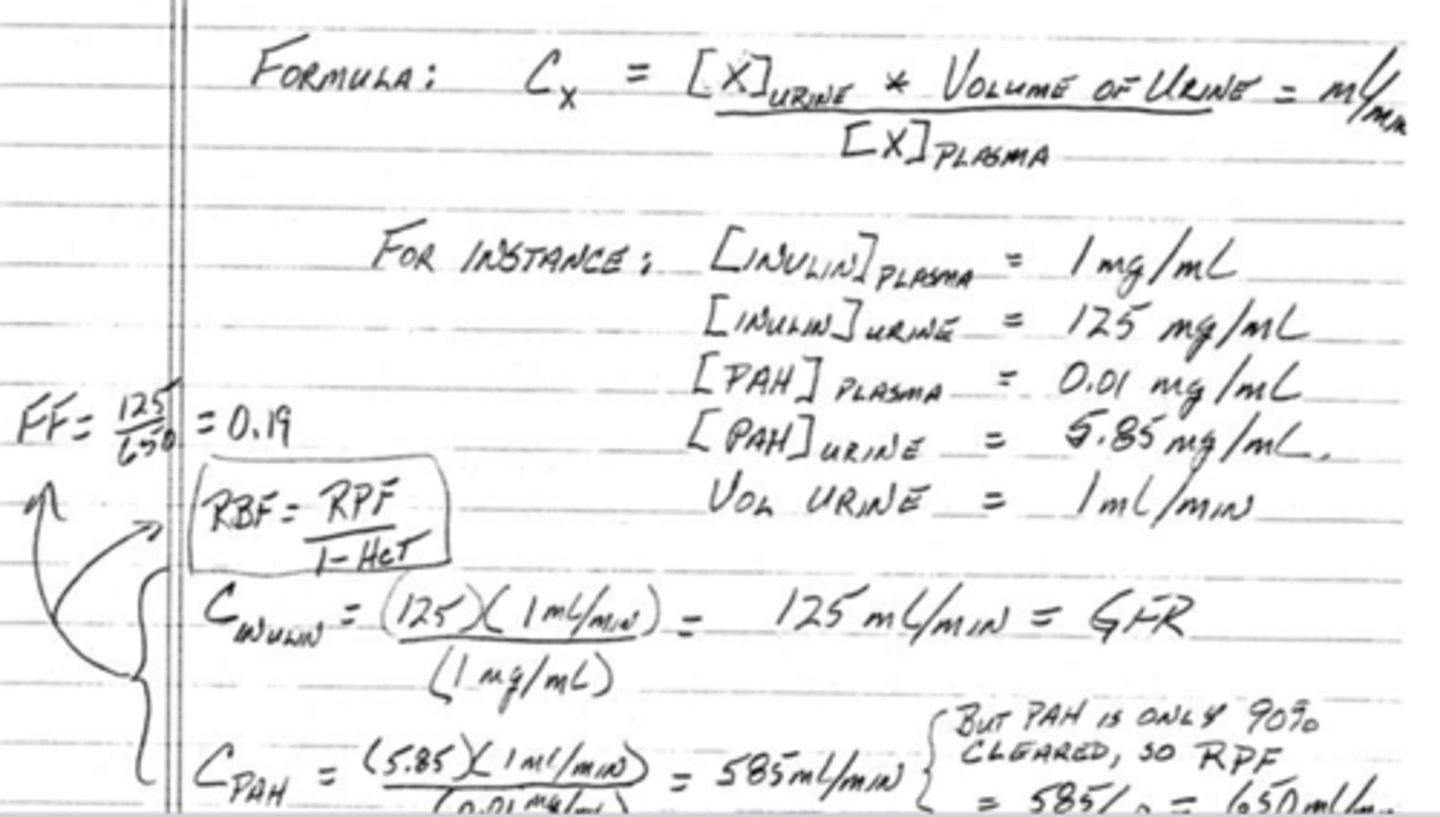 FORMULA: Cx = [X]URINE * VOLUME OF URINE = mL/min
[X]PLASMA
FOR INSTANCE: [INULIN]PLASMA = 1 mg/mL
[INULIN]URINE = 125 mg/mL
[PAH]PLASMA = 0.01 mg/mL
FF = 125/650 = 0.19
[PAH]URINE = 5.85 mg/mL.
RBF = RPF/1-HCT
VOL URINE = 1 mL/min
CINULIN = (125)(1 mL/min) = 125 mL/min = GFR
(1 mg/mL)
BUT PAH IS ONLY 90%
CLEARED, SO RPF
CPAH = (5.85)(1 ml/min) = 585 mL/min
(0.01 mg/mL)
= 585/ = 650 ml/m